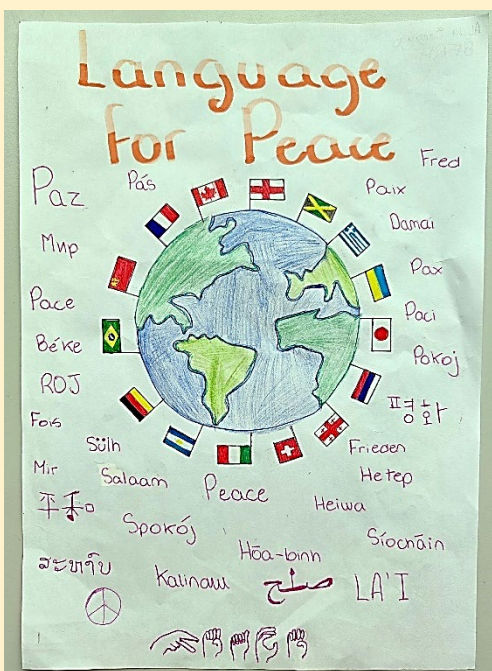 Language
for Peace
Fred
Paz
Pás
Paix
Мир
Damai
Pax
Pace
Paci
Béke
Pokoj
ROJ
평화
Fois
Sülh
Frieden
Mir
Salaam
Peace
Hetep
平和
Heiwa
Spokój
Síocháin
Hōa-binh
Kalinaw
صلح
LA'I